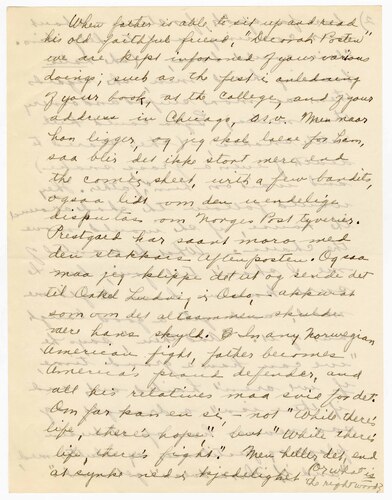 When father is able to sit up and read
his old faithful friend, "Decorah Posten"
we are kept informed of your various
doings; such as the fest i anledning
of your book, at the college, and of your
address in Chicago, o.s.v. Men naar
han ligger, og jeg skal læse for ham,
saa blir det ikke stort mere end
the comic sheet, with a few bandits,
ogsaa lidt om den uendelige
disputas om Norges Post tyverier.
Prestgard har saant moro med
den stakkars Aftenposten. Og saa
maa jeg klippe dot ut og sende det
til Onkel Ludvig i Oslo - appurat
som om det altsammen skulde
være hans skyld. In any Norwegian
American fight, father becomes
America's proud defender, and
all his relatives maa svid for det.
Om far kan en si, not "While there's
life, there's hope" but "While there's
life, there's fight." Men heller det, end
at synke ned i kjedelighet
Or what is
the right word?